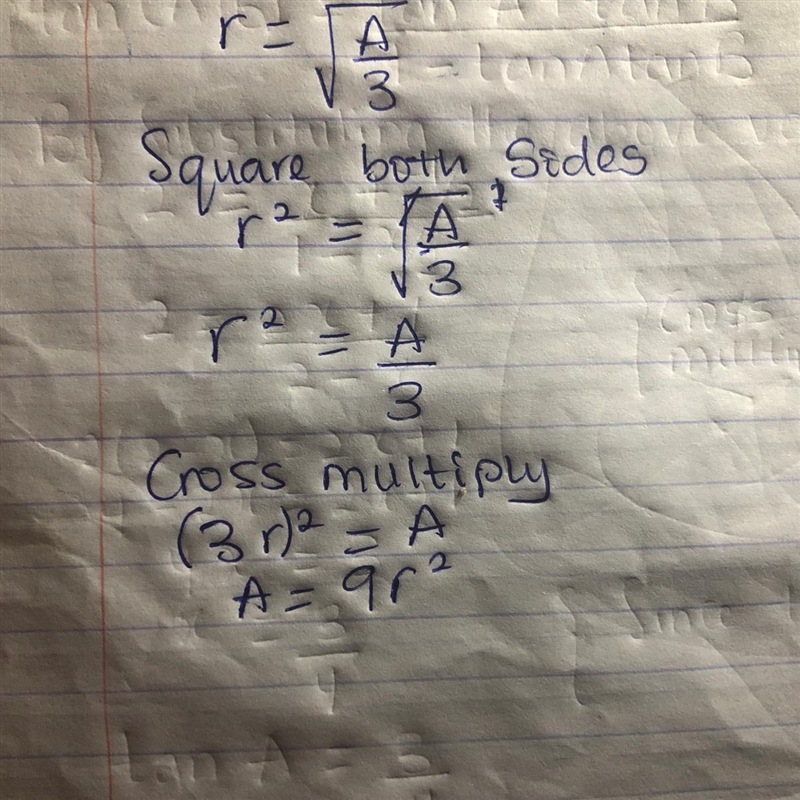 r = √A/3
Square both sides
r² = √A/3 ²
r² = A/3
Cross multiply
(3r)² = A
A = 9r²
tan A = 3